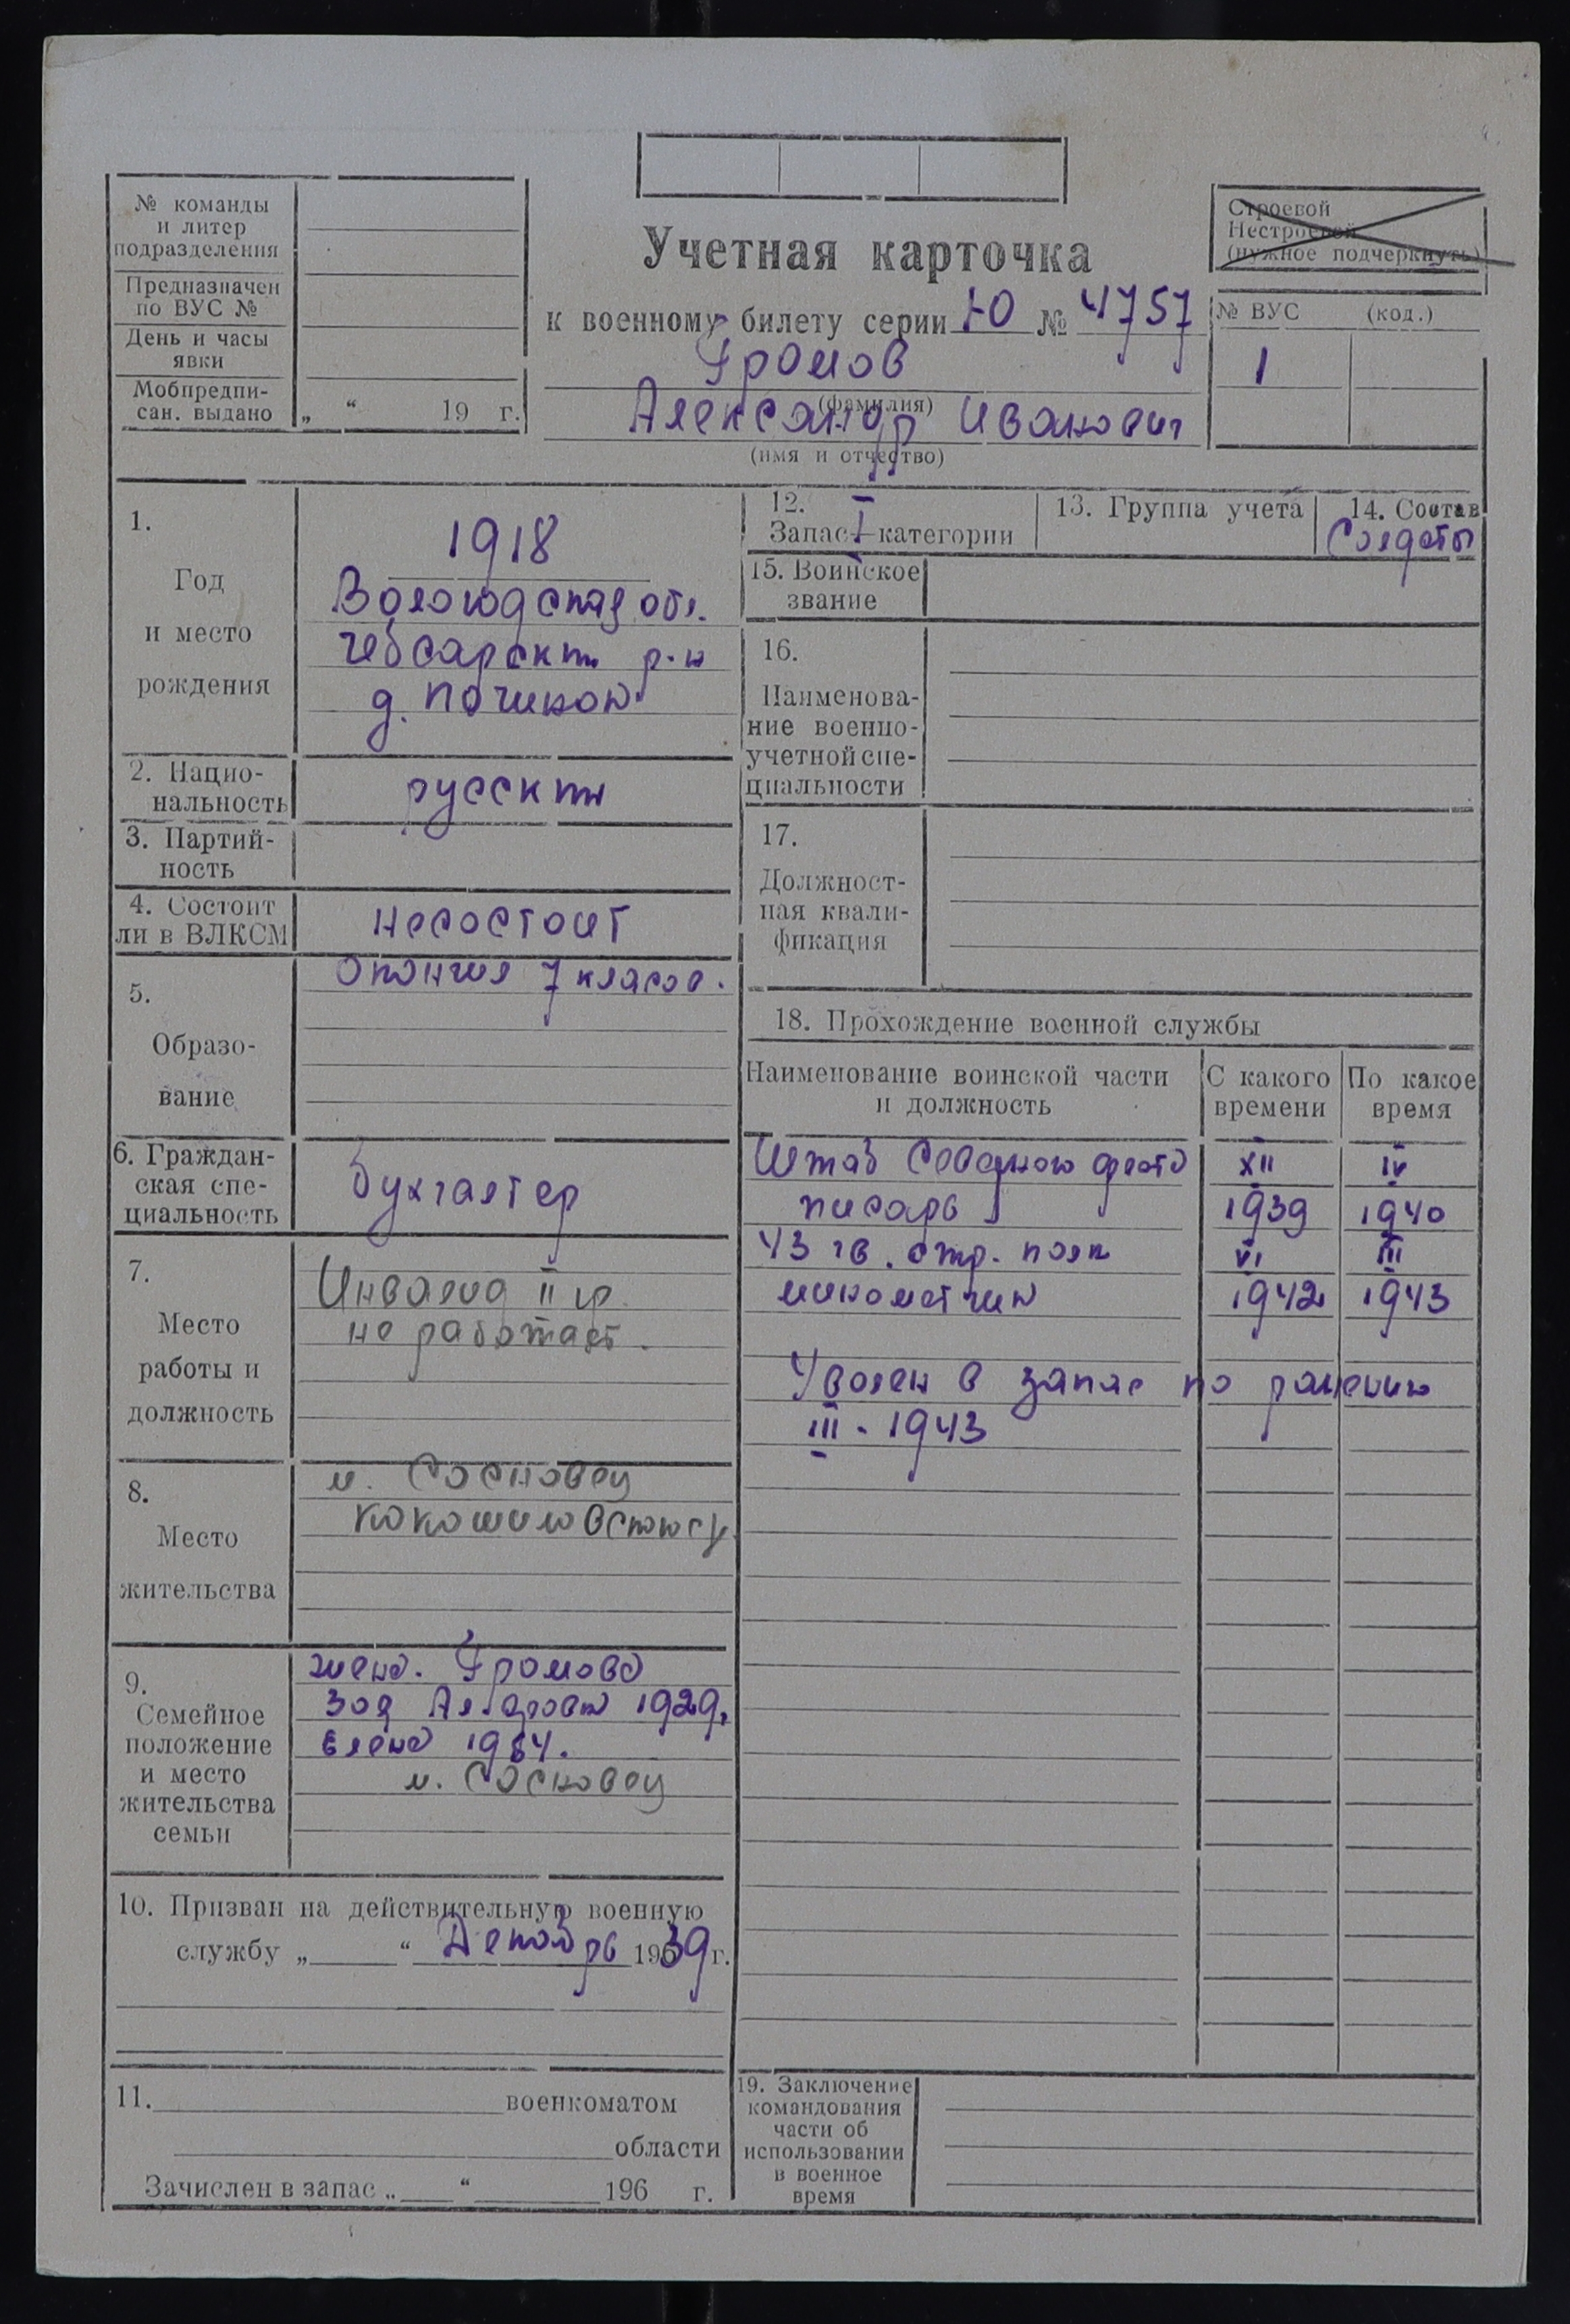 № команды
и литер
подразделения
Предназначен
по ВУС №
День и часы
явки
Мобпредпи-
сан. выдано „ “ 19 г.
Учетная карточка
к военному билету серии Ю № 4757
Громов
(фамилия)
Александр Иванович
(имя и отчество)
Строевой
Нестроевой
(нужное подчеркнуть)
№ ВУС (код.)
1
1.
Год
и место
рождения
1918
Вологодская обл.
Чебсарский р-н
д. Починок
2. Нацио-
нальность
русский
3. Партий-
ность
4. Состоит
ли в ВЛКСМ
несостоит
5.
Образо-
вание
Окончил 7 класов.
6. Граждан-
ская спе-
циальность
бухгалтер
7.
Место
работы и
должность
Инвалид II гр.
не работает.
8.
Место
жительства
п. Сосновец
9.
Семейное
положение
и место
жительства
семьи
жена. Громова
Зоя 1929г
Елена 1954.
п. Сосновец
10. Призван на действительную военную
службу „ “ Декабрь 1939 г.
11. военкоматом
области
Зачислен в запас „ “ 196 г.
12.
Запас I категории
13. Группа учета
14. Состав
Солдаты
15. Воинское
звание
16.
Наименова-
ние военно-
учетной спе-
циальности
17.
Должност-
ная квали-
фикация
18. Прохождение военной службы
Наименование воинской части
и должность
С какого
времени
По какое
время
Штаб Северного флота XII IV
писарь 1939 1940
43 гв. стр. полк VI III
минометчик 1942 1943
Уволен в запас по ранению
III - 1943
19. Заключение
командования
части об
использовании
в военное
время